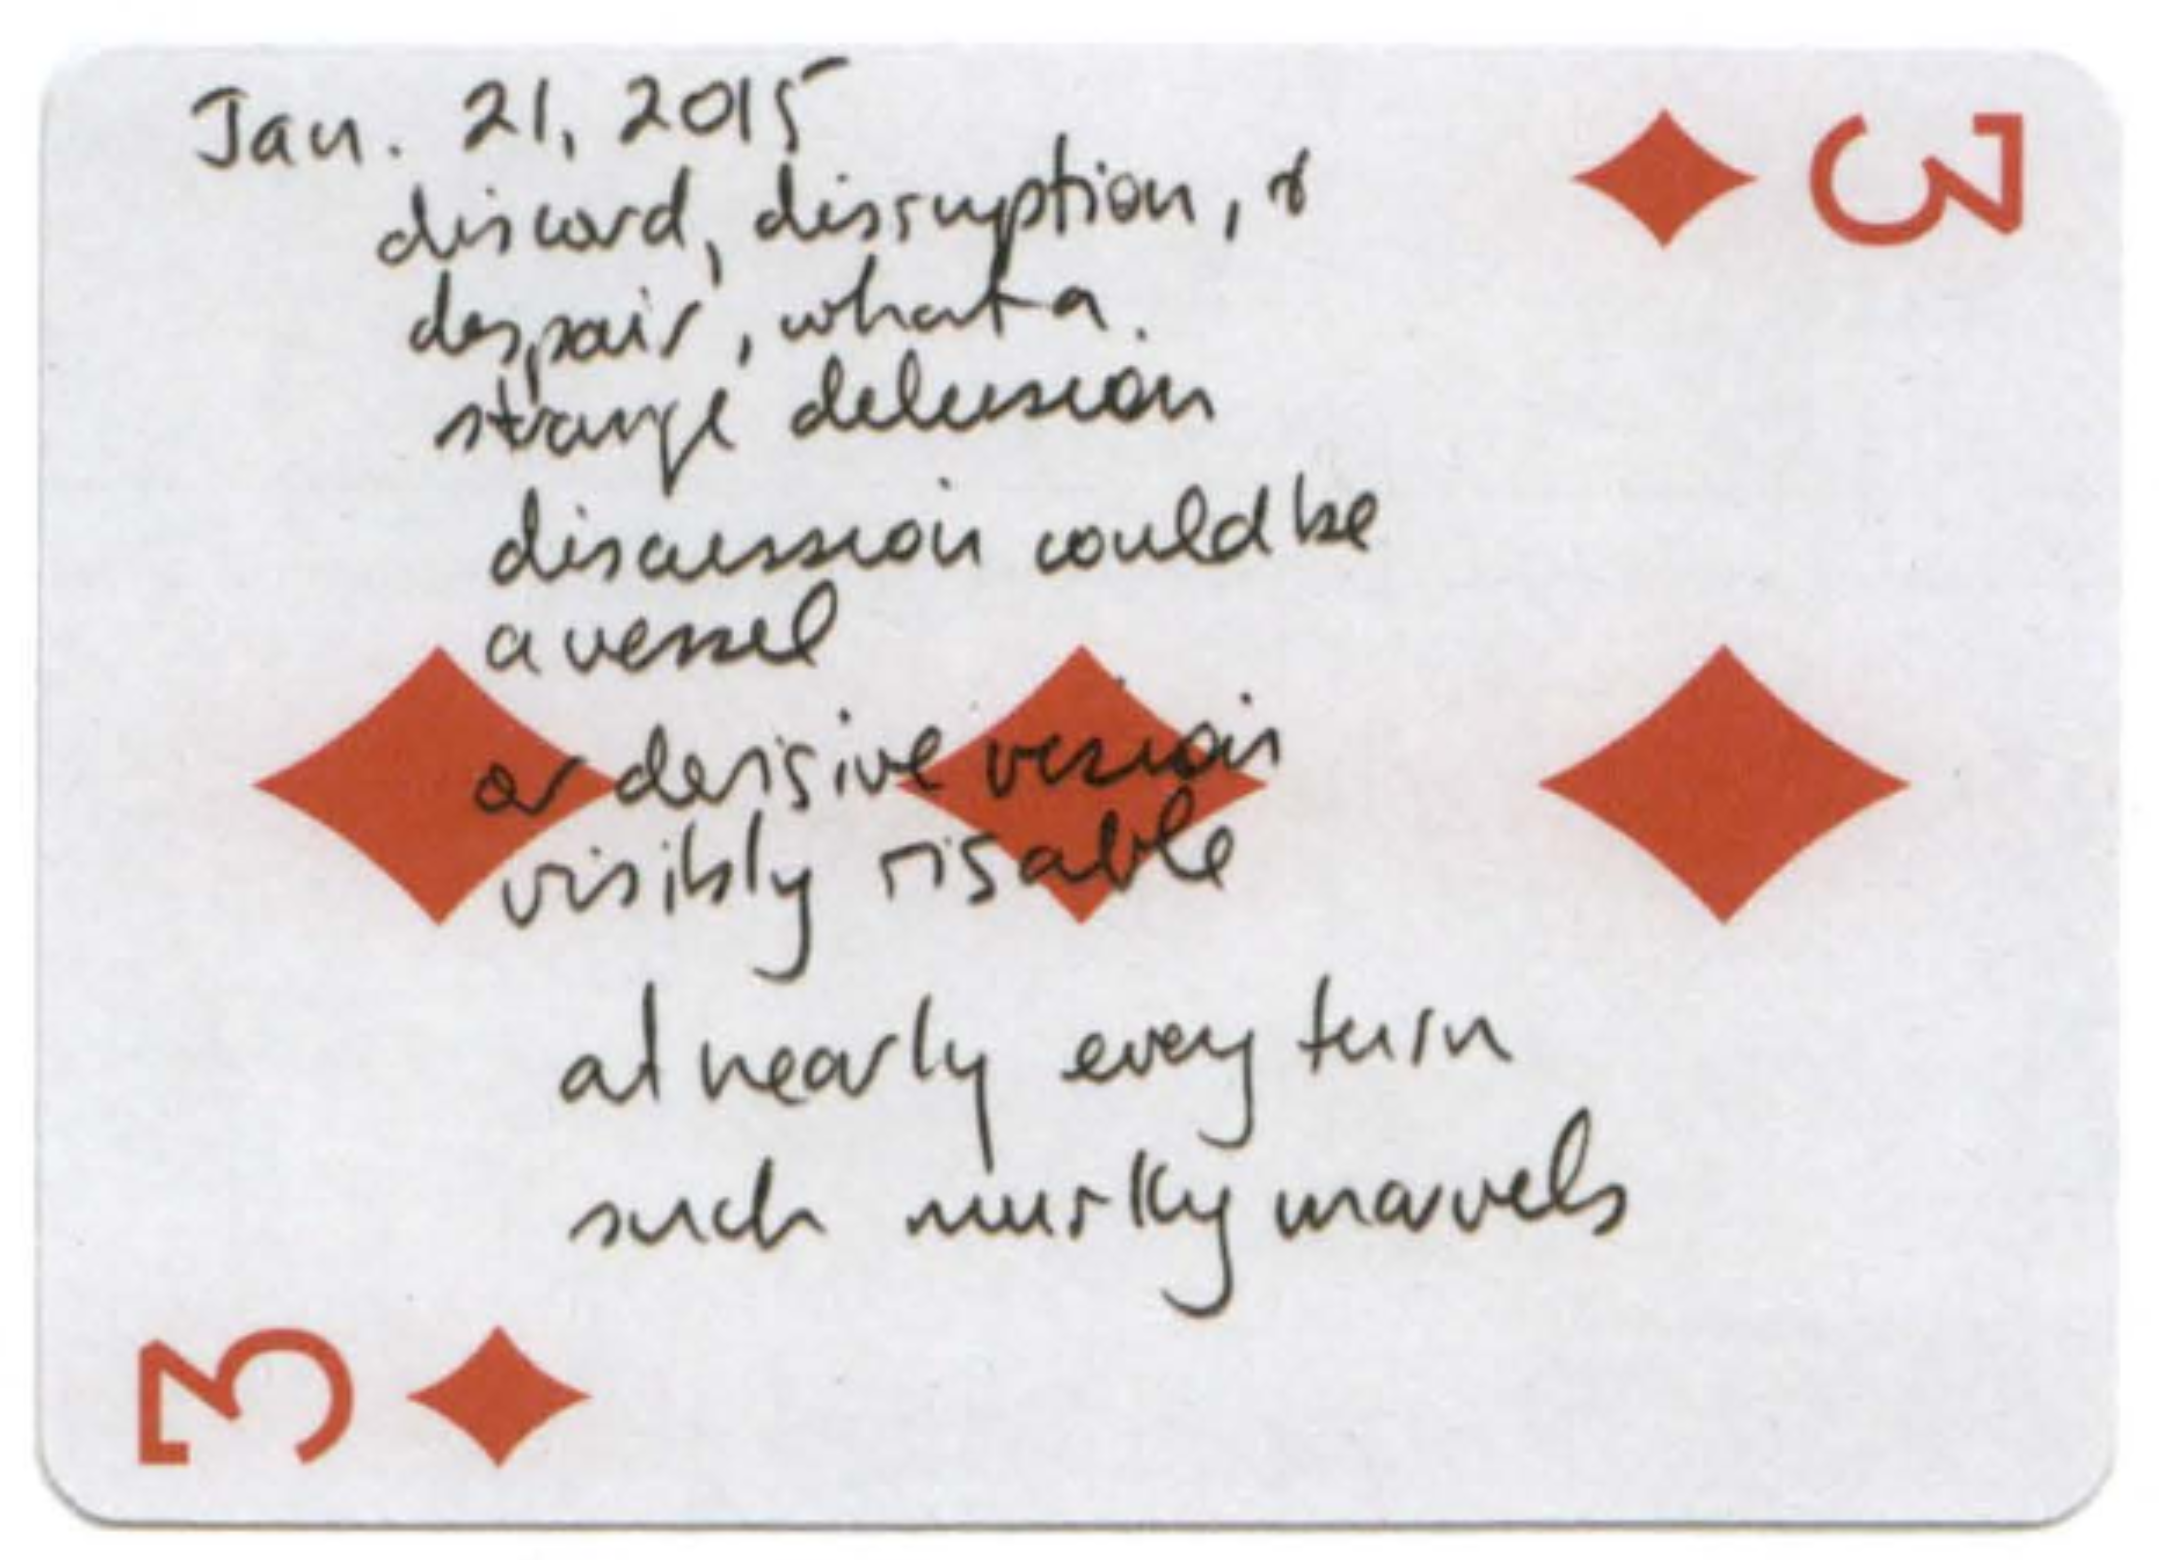 Jan. 21, 2015
discord, disruption, &
despair, what a
strange delusion
discussion could be
a vessel
or derisive vision
visibly risable
at nearly every turn
such murky marvels
3
3